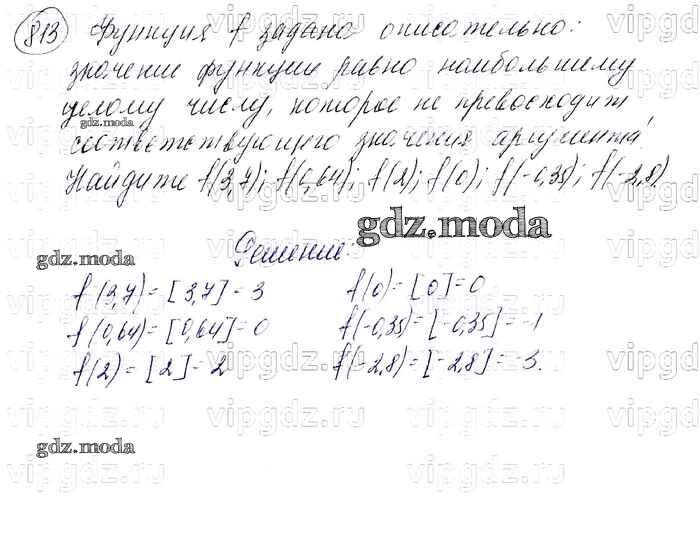 813 Функция f задана описательно:
значение функции равно наибольшему
целому числу, которое не превосходит
gdz.moda
соответствующего значения аргумента.
Найдите f(3,7); f(0,64); f(2); f(0); f(-0,35); f(-2,8).
gdz.moda
Решение:
gdz.moda
f(3,7) = [3,7] = 3 f(0) = [0] = 0
f(0,64) = [0,64] = 0 f(-0,35) = [-0,35] = -1
f(2) = [2] = 2 f(-2,8) = [-2,8] = -3.
gdz.moda
vipgdz.ru